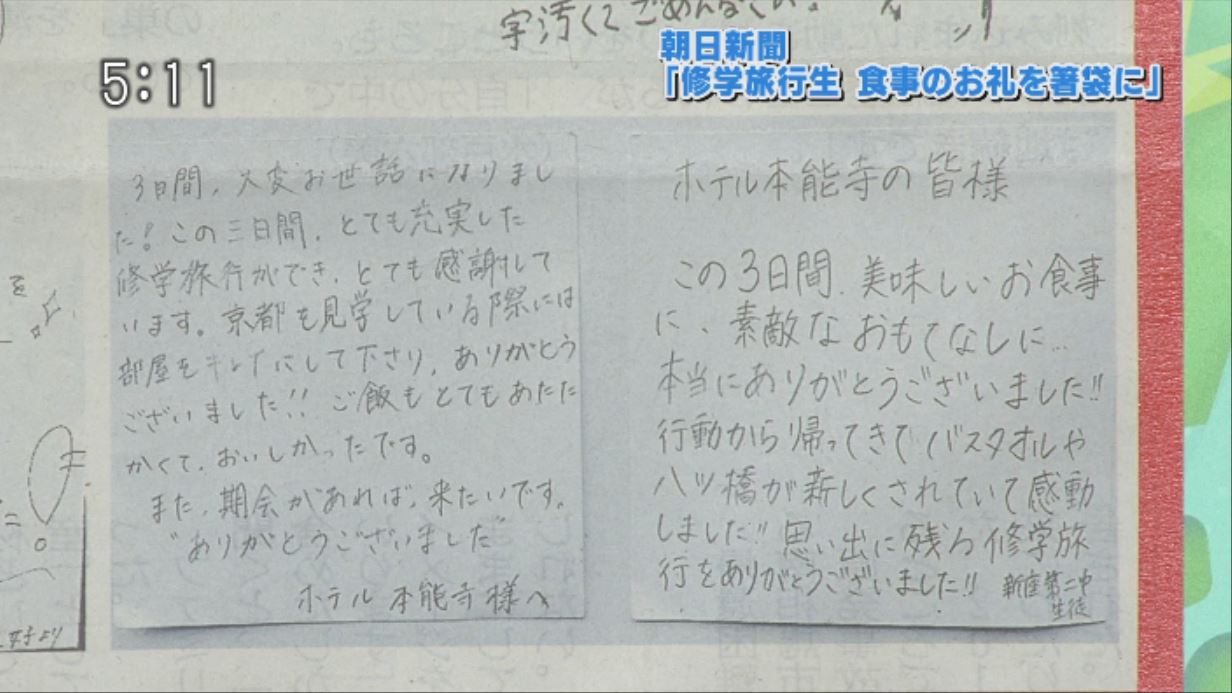 字汚くてごめんなさい。
朝日新聞
「修学旅行生 食事のお礼を箸袋に」
5:11
3日間、大変お世話になりまし
た!この三日間、とても充実した
修学旅行ができ、とても感謝して
います。京都を見学している際には
部屋をキレイにして下さり、ありがとう
ございました!!ご飯もとてもあたた
かくて、おいしかったです。
また、期会があれば、来たいです。
"ありがとうございました"
ホテル 本能寺様へ
ホテル本能寺の皆様
この3日間、美味しいお食事
に、素敵なおもてなしに…
本当にありがとうございました!!
行動から帰ってきてバスタオルや
八ツ橋が新しくされていて感動
しました!!思い出に残る修学旅
行をありがとうございました!!
新座第二中
生徒